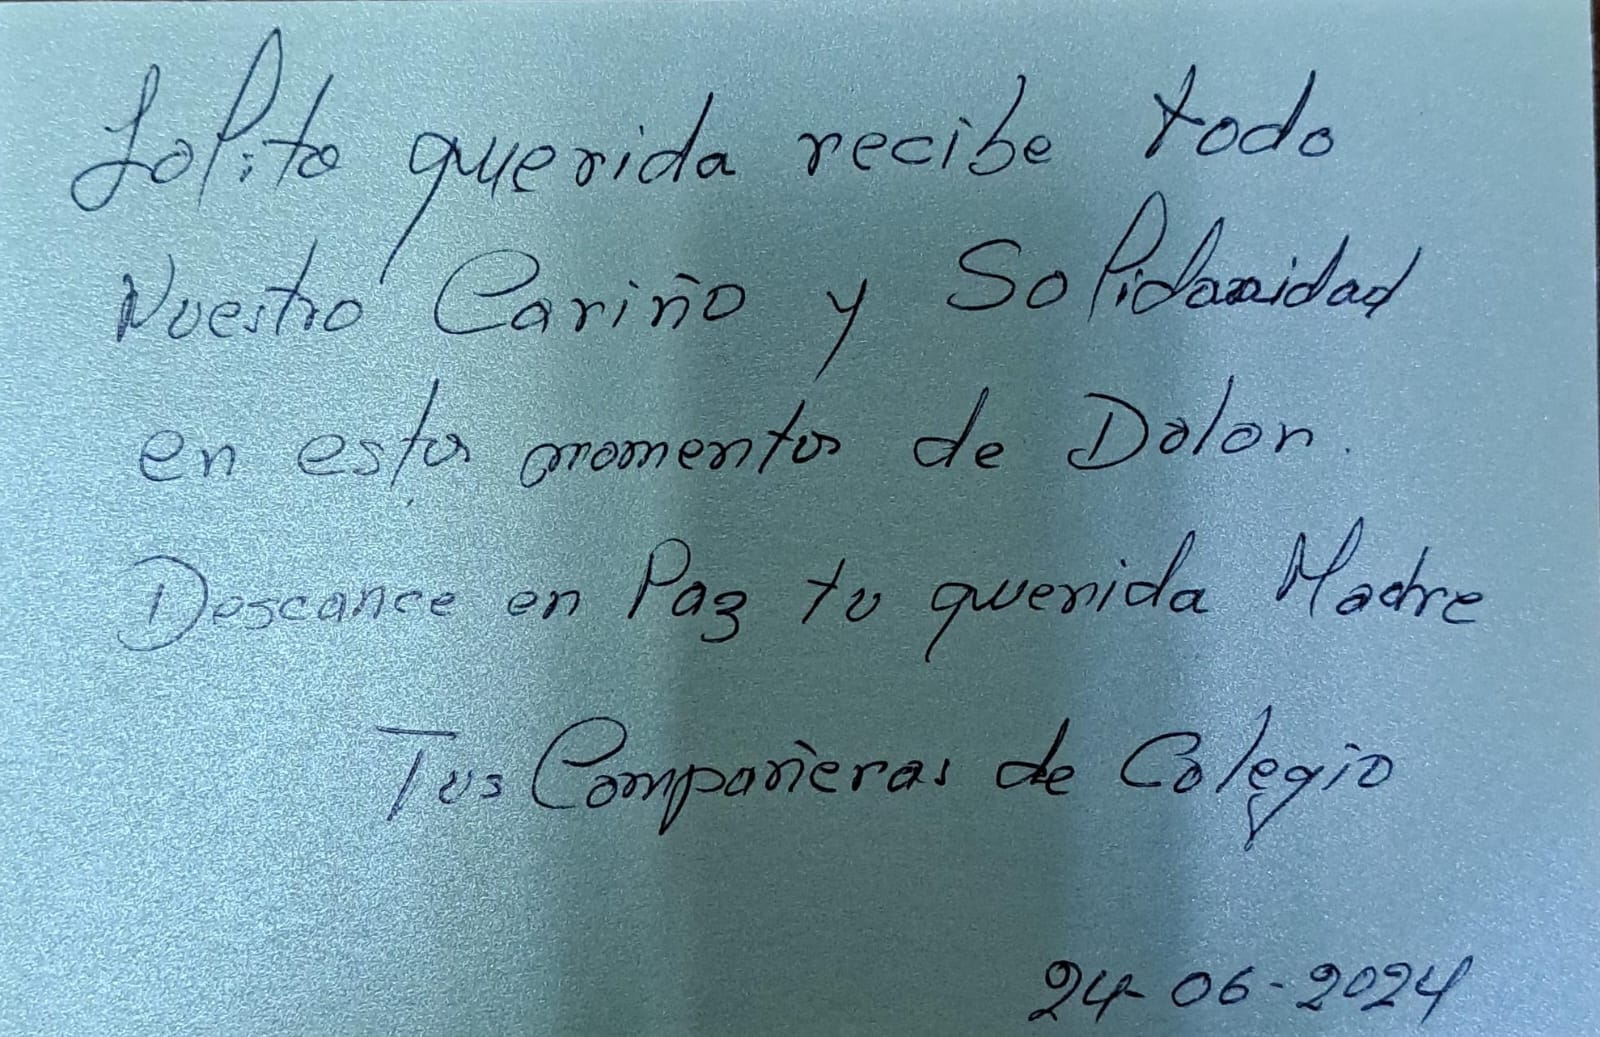 Lolita querida recibe todo
Nuestro Cariño y Solidaridad
en estos momentos de Dolor.
Descance en Paz tu querida Madre
Tus Compañeras de Colegio
24-06-2024